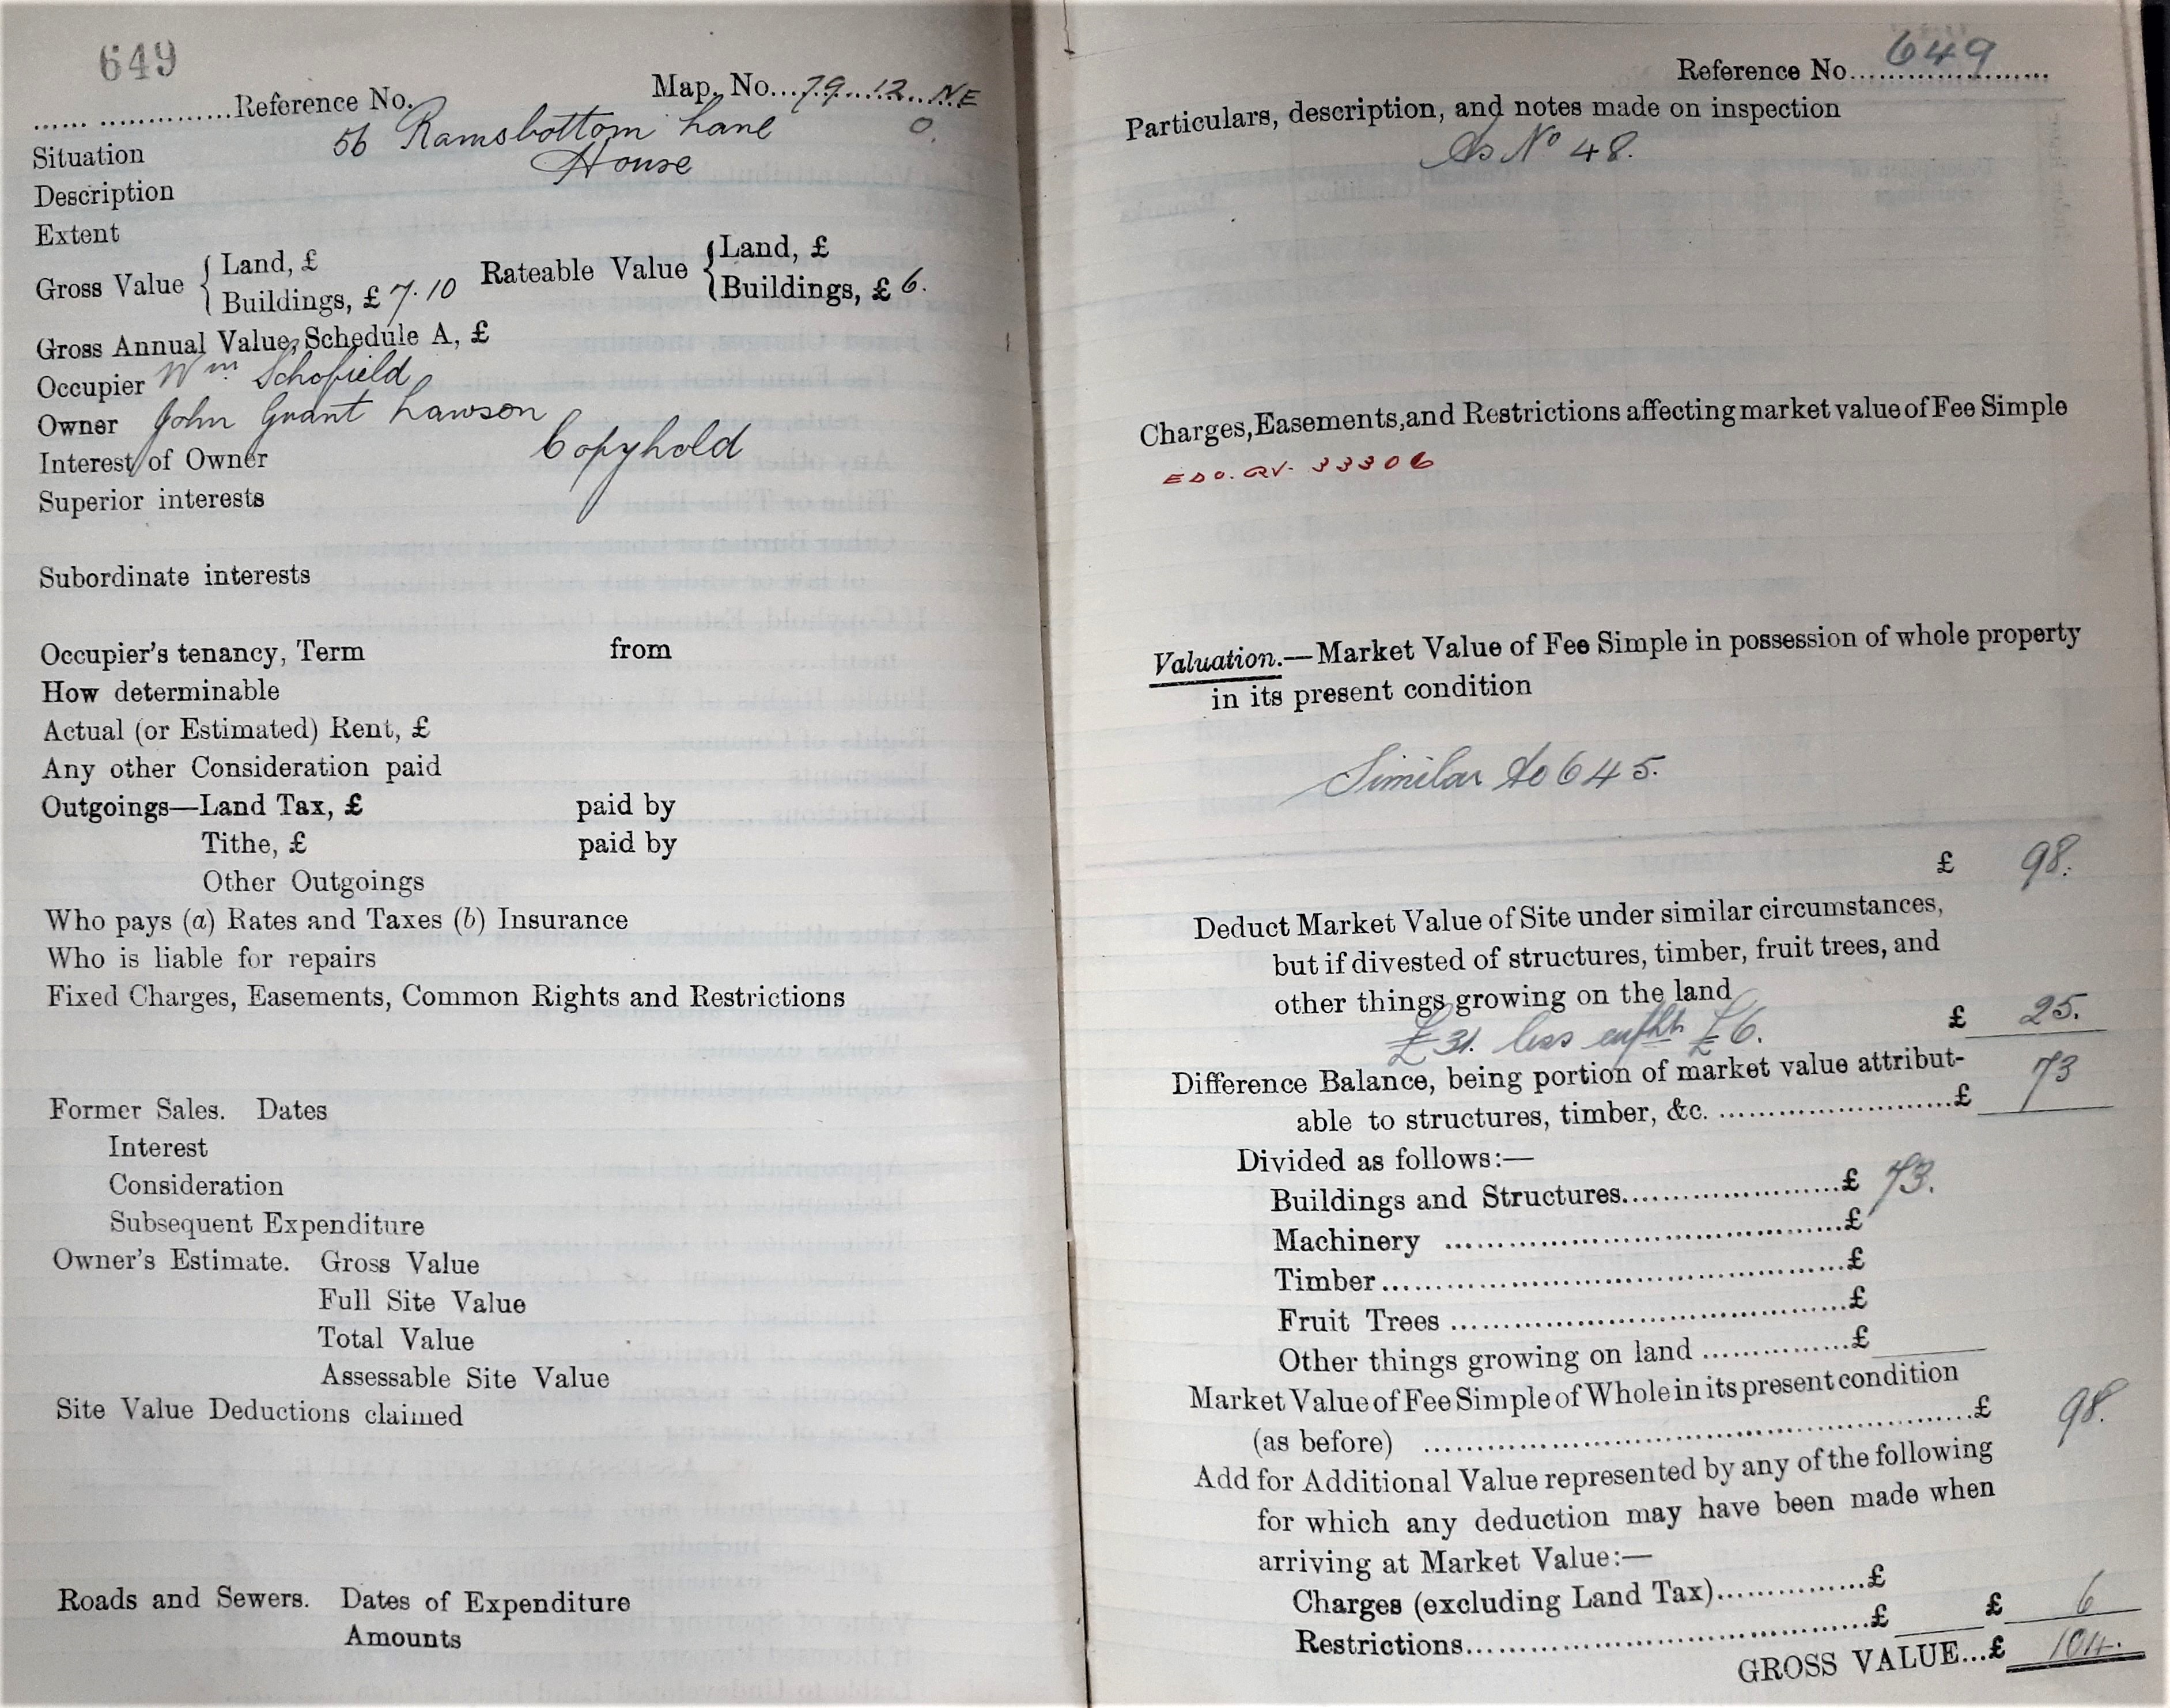 649
...... ..............Reference No. Map. No...79...12...NE
O.
Situation 56 Ramsbottom Lane
Description House
Extent
Gross Value { Land, £ Rateable Value { Land, £
Buildings, £ 7.10 Buildings, £ 6.
Gross Annual Value, Schedule A, £
Occupier Wm. Schofield
Owner John Grant Lawson
Interest of Owner Copyhold
Superior interests
Subordinate interests
Occupier's tenancy, Term from
How determinable
Actual (or Estimated) Rent, £
Any other Consideration paid
Outgoings—Land Tax, £ paid by
Tithe, £ paid by
Other Outgoings
Who pays (a) Rates and Taxes (b) Insurance
Who is liable for repairs
Fixed Charges, Easements, Common Rights and Restrictions
Former Sales. Dates
Interest
Consideration
Subsequent Expenditure
Owner's Estimate. Gross Value
Full Site Value
Total Value
Assessable Site Value
Site Value Deductions claimed
Roads and Sewers. Dates of Expenditure
Amounts
Reference No. 649
Particulars, description, and notes made on inspection
As No 48.
Charges, Easements, and Restrictions affecting market value of Fee Simple
33306
Valuation.—Market Value of Fee Simple in possession of whole property
in its present condition
Similar to 645.
£ 98.
Deduct Market Value of Site under similar circumstances,
but if divested of structures, timber, fruit trees, and
other things growing on the land
£31. less enfht £6. £ 25.
Difference Balance, being portion of market value attribut-
able to structures, timber, &c. ..........................£ 73
Divided as follows:—
Buildings and Structures.......................£ 73.
Machinery ..........................................£
Timber.................................................£
Fruit Trees ..........................................£
Other things growing on land ...............£
Market Value of Fee Simple of Whole in its present condition
(as before) ..........................................................£ 98.
Add for Additional Value represented by any of the following
for which any deduction may have been made when
arriving at Market Value:—
Charges (excluding Land Tax)...............£
Restrictions...........................................£ £ 6
GROSS VALUE...£ 104.